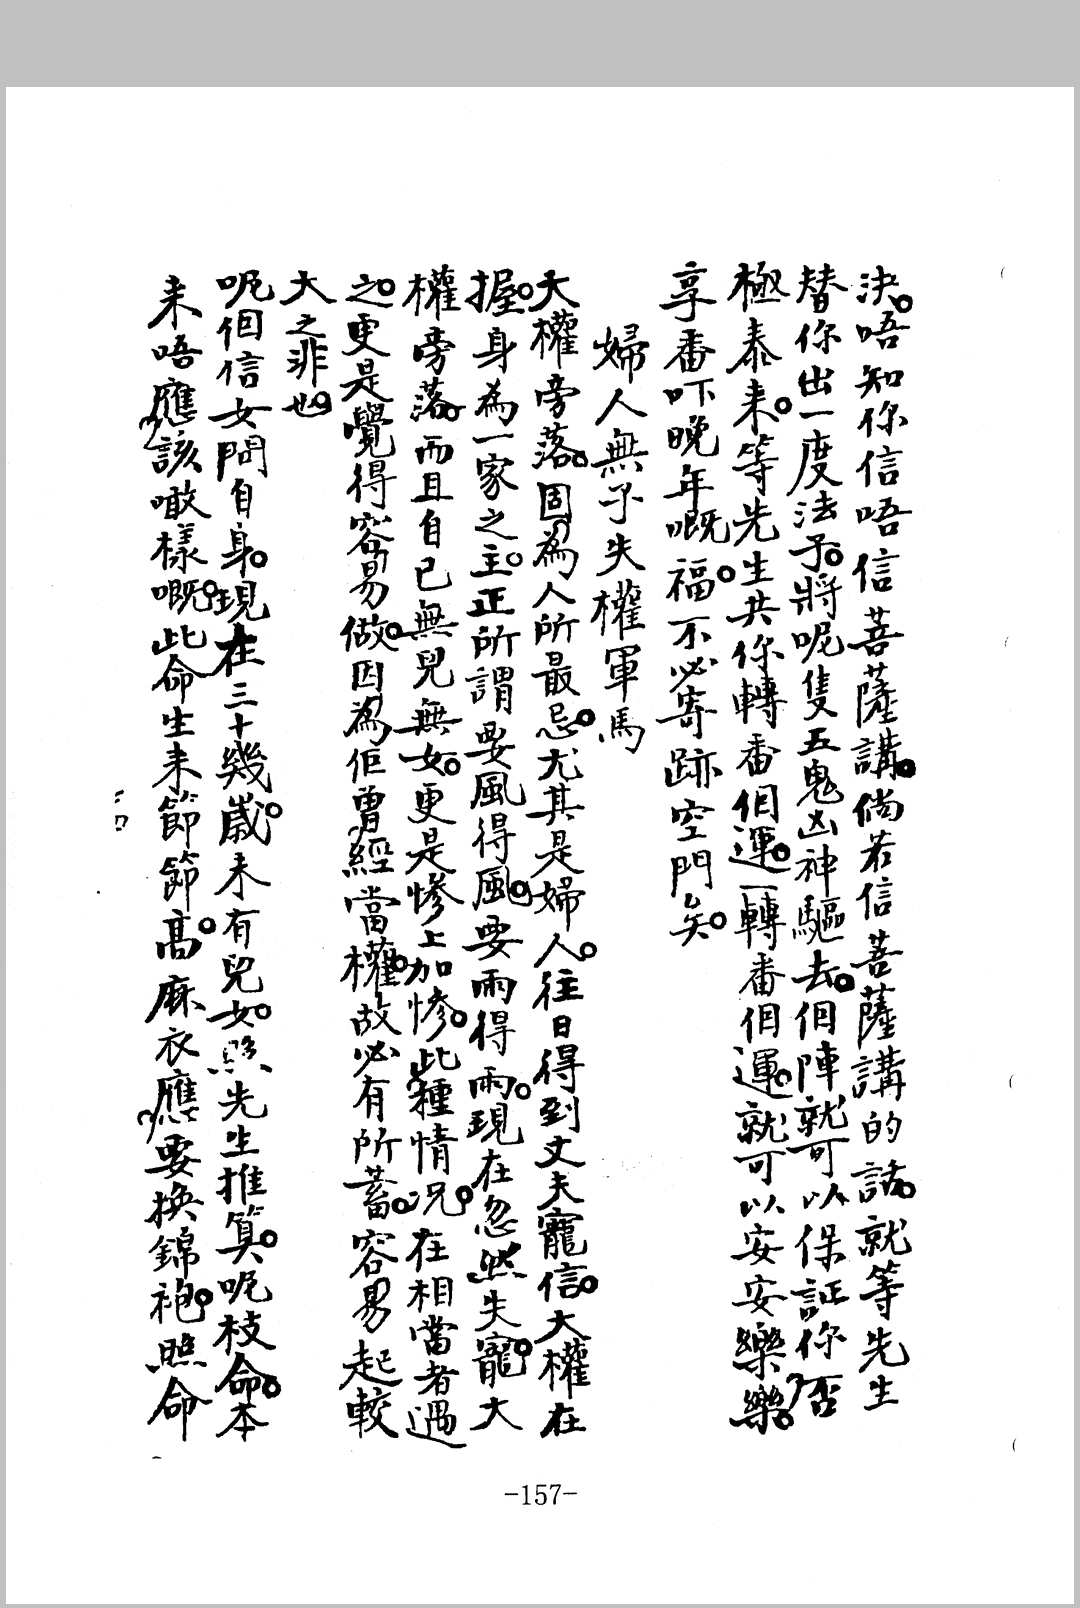 決。唔知你信唔信菩薩講。倘若信菩薩講的話。就等先生
替你出一度法子。將呢隻五鬼凶神驅去。佪陣就可以保証你否
極泰来。等先生共你轉番佪運。一轉番佪運。就可以安安樂樂。
享番吓晚年嘅福。不必寄跡空門矣。
婦人無子失權軍馬
大權旁落。固為人所最忌。尤其是婦人。往日得到丈夫寵信。大權在
握。身為一家之主。正所謂要風得風。要雨得雨。現在忽然失寵。大
權旁落。而且自己無兒無女。更是慘上加慘。此種情况。在相當者遇
之。更是覺得容易做。因為佢曾經當權。故必有所蓄。容易起較
大之非也。
呢佪信女問自身。現在三十幾歲。未有兒女。照先生推算。呢枝命。本
来唔應該噉樣嘅。此命生来節節高。麻衣應要換錦袍。照命
-157-